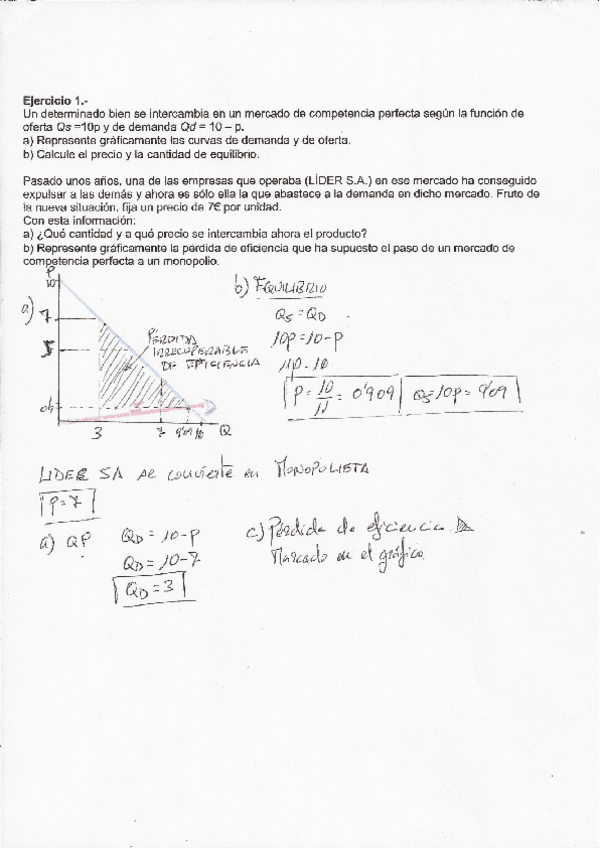 Ejercicio 1.-
Un determinado bien se intercambia en un mercado de competencia perfecta según la función de
oferta Qs =10p y de demanda Qd = 10 – p.
a) Represente gráficamente las curvas de demanda y de oferta.
b) Calcule el precio y la cantidad de equilibrio.
Pasado unos años, una de las empresas que operaba (LÍDER S.A.) en ese mercado ha conseguido
expulsar a las demás y ahora es sólo ella la que abastece a la demanda en dicho mercado. Fruto de
la nueva situación, fija un precio de 7€ por unidad.
Con esta información:
a) ¿Qué cantidad y a qué precio se intercambia ahora el producto?
b) Represente gráficamente la pérdida de eficiencia que ha supuesto el paso de un mercado de
competencia perfecta a un monopolio.
a)
P
10
7
PÉRDIDA
IRRECUPERABLE
DE EFICIENCIA
3
7
9'09
10
Q
b) EQUILIBRIO
QS = QD
10P = 10 - P
P = 10/11 = 0'909
QS = 10P = 9'09
LIDER SA se convierte en MONOPOLISTA
P = 7
a) QP
QD = 10 - P
QD = 10 - 7
QD = 3
c) Pérdida de eficiencia
Marcado en el gráfico.